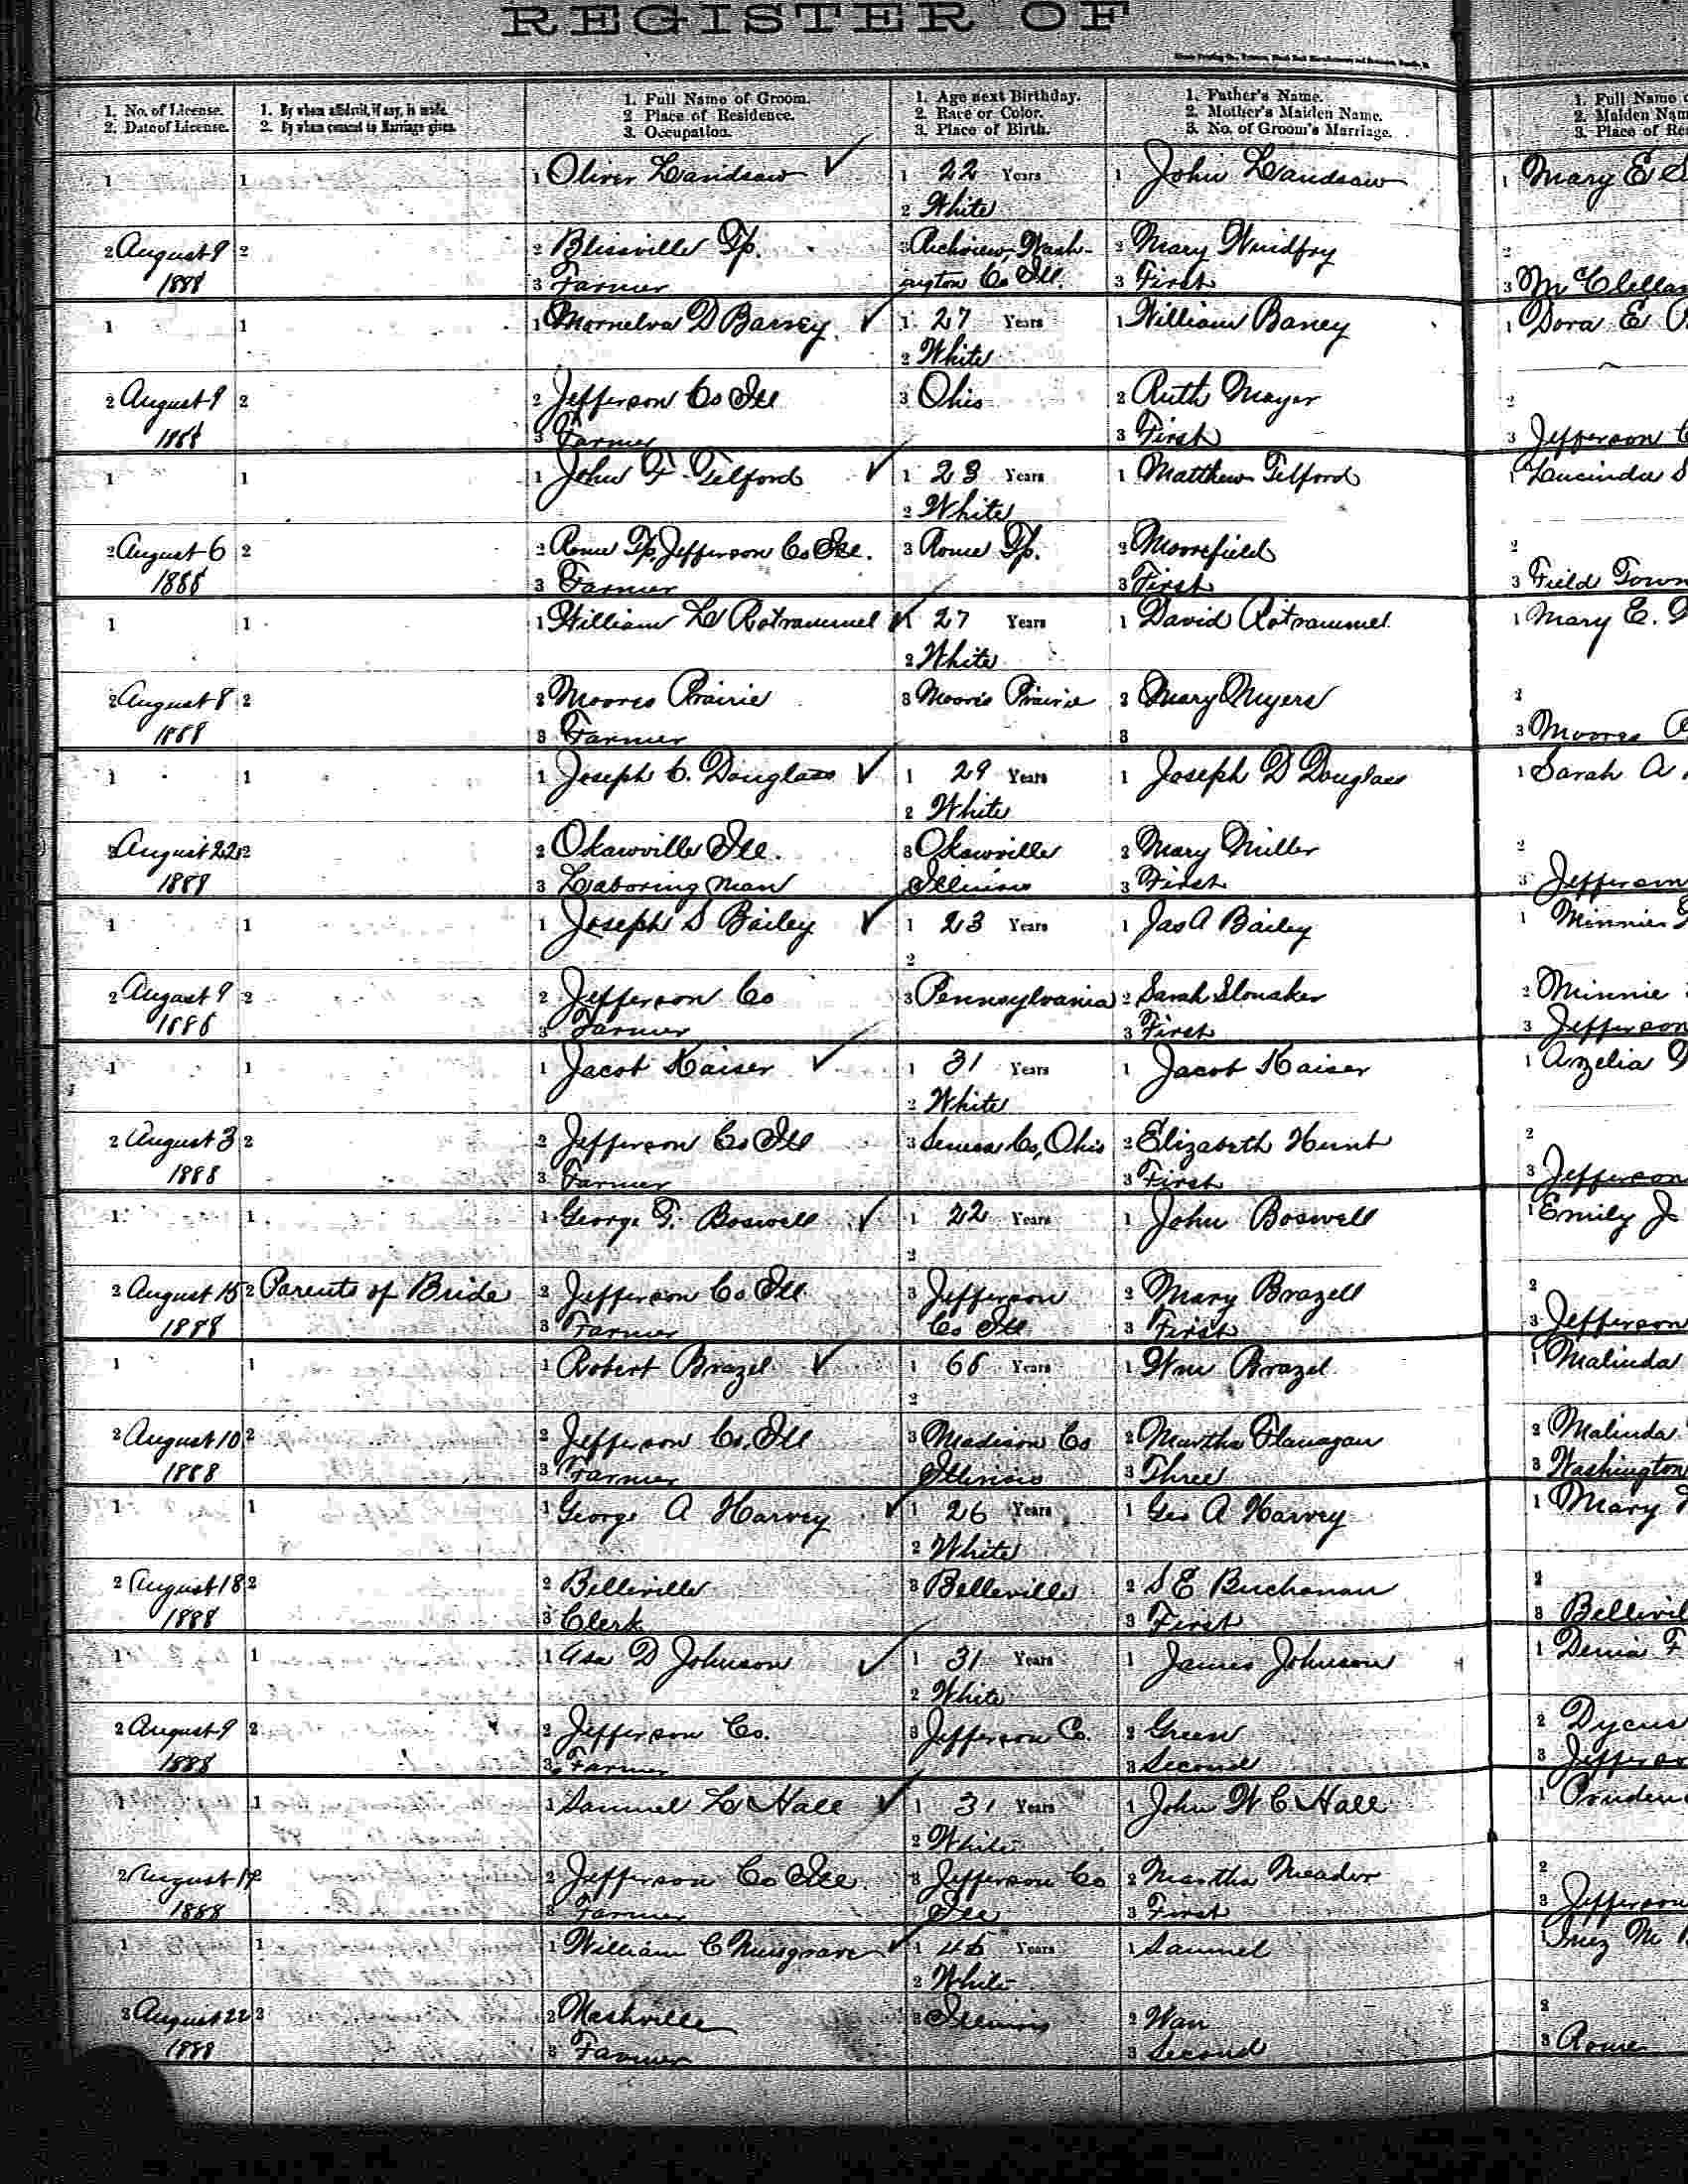 REGISTER OF
1. No. of License.
2. Date of License.
1. By whom affidavit, if any, is made.
2. By whom consent to Marriage given.
1. Full Name of Groom.
2 Place of Residence.
3. Occupation.
1. Age next Birthday.
2. Race or Color.
3. Place of Birth.
1. Father's Name.
2. Mother's Maiden Name.
3. No. of Groom's Marriage.
1. Full Name
2. Maiden Nam
3. Place of Re
1 1 1 Oliver Landsaw 1 22 Years 1 John Landsaw 1 Mary E S
2 White
2 August 9 2 2 Blissville Tp. 3 Richview, Wash- 2 Mary 2
1888 3 Farmer ington Co Ill. 3 First 3 McClellan
1 1 1 D Barney 1 27 Years 1 William Baney 1 Dora E
2 White
2 August 9 2 2 Jefferson Co Ill 3 Ohio 2 Ruth Mayer 2
1888 3 Farmer 3 First 3 Jefferson C
1 1 1 John F Telford 1 23 Years 1 Matthew Telford 1 Lucinda S
2 White
2 August 6 2 2 Rome Tp, Jefferson Co Ill. 3 Rome Tp. 2 Moorefield 2
1888 3 Farmer 3 First 3 Field Town
1 1 1 William L Rotrammel 1 27 Years 1 David Rotrammel 1 Mary E.
2 White
2 August 8 2 2 Moores Prairie 3 Moores Prairie 2 Mary Myers 2
1888 3 Farmer 3 3 Moores
1 1 1 Joseph C. Douglass 1 29 Years 1 Joseph D Douglass 1 Sarah A
2 White
2 August 22 2 2 Okawville Ill. 3 Okawville 2 Mary Miller 2
1888 3 Laboring Man Illinois 3 First 3 Jefferson
1 1 1 Joseph S Bailey 1 23 Years 1 Jas A Bailey 1 Minnie
2
2 August 9 2 2 Jefferson Co 3 Pennsylvania 2 Sarah Slonaker 2 Minnie
1888 3 Farmer 3 First 3 Jefferson
1 1 1 Jacob Kaiser 1 31 Years 1 Jacob Kaiser 1 Azelia
2 White
2 August 3 2 2 Jefferson Co Ill 3 Seneca Co, Ohio 2 Elizabeth Hunt 2
1888 3 Farmer 3 First 3 Jefferson
1 1 1 George T. Boswell 1 22 Years 1 John Boswell 1 Emily J
2
2 August 15 2 Parents of Bride 2 Jefferson Co Ill 3 Jefferson 2 Mary Brazell 2
1888 3 Farmer Co Ill 3 First 3 Jefferson
1 1 1 Robert Brazel 1 Years 1 Wm Brazel 1 Malinda
2
2 August 10 2 2 Jefferson Co. Ill 3 Madison Co 2 Martha Flanagan 2 Malinda
1888 3 Farmer Illinois 3 Three 3 Washington
1 1 1 George A Harvey 1 26 Years 1 Geo A Harvey 1 Mary
2 White
2 August 18 2 2 Belleville 3 Belleville 2 S E Buchanan 2
1888 3 Clerk 3 First 3 Bellevil
1 1 1 Asa D Johnson 1 31 Years 1 James Johnson 1
2 White
2 August 9 2 2 Jefferson Co. 3 Jefferson Co. 2 Green 2 Dycus
1888 3 Farmer 3 Second 3 Jefferso
1 1 1 Samuel L Hall 1 31 Years 1 John W C Hall 1 Pruden
2 White
2 August 2 Jefferson Co Ill. 3 Jefferson Co 2 Martha Meador 2
1888 3 Farmer Ill 3 First 3 Jefferson
1 1 1 William C Musgrave 1 45 Years 1 Samuel 1 Inez M
2 White
2 August 22 2 2 Nashville 3 Illinois 2 2
1888 3 Farmer 3 Second 3 Rome